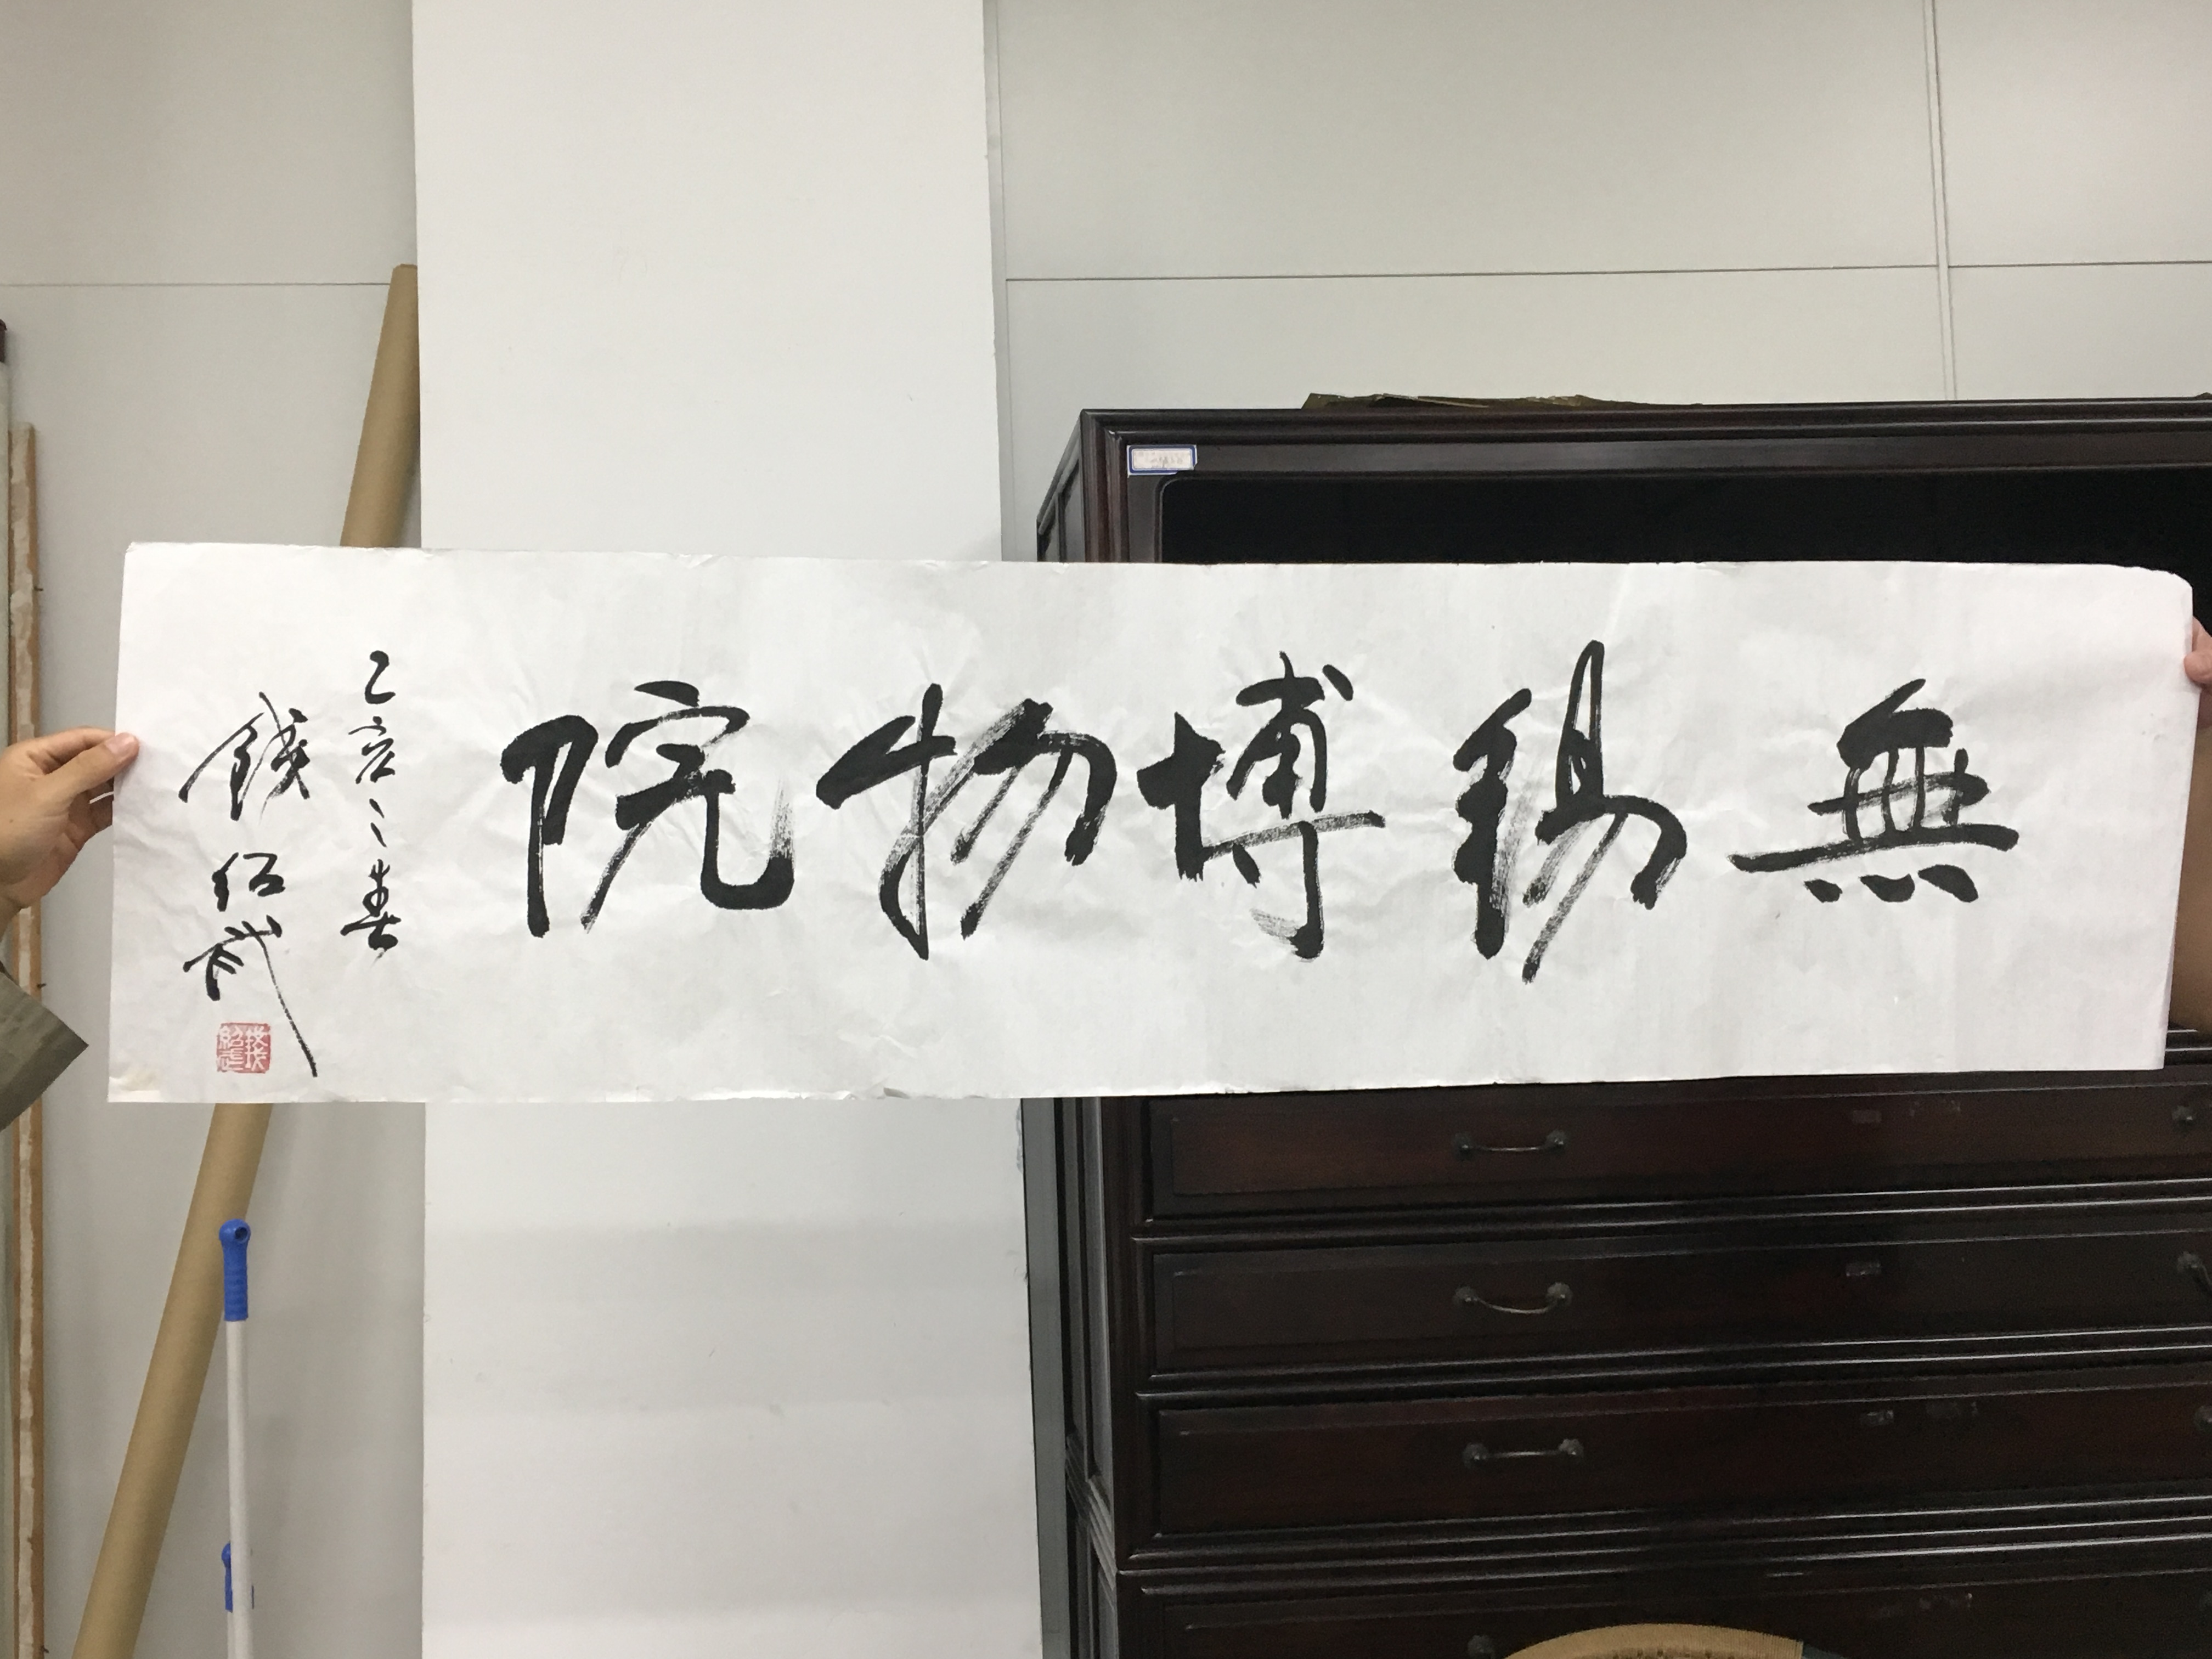 無錫博物院
乙亥之春
錢紹武
錢紹武